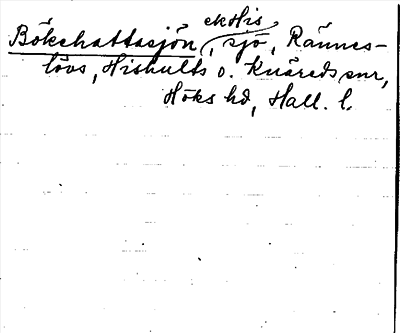 ekHis
Bökehattasjön, sjö, Rännes-
lövs, Hishults o. Knäreds snr,
Höks hd, Hall. l.